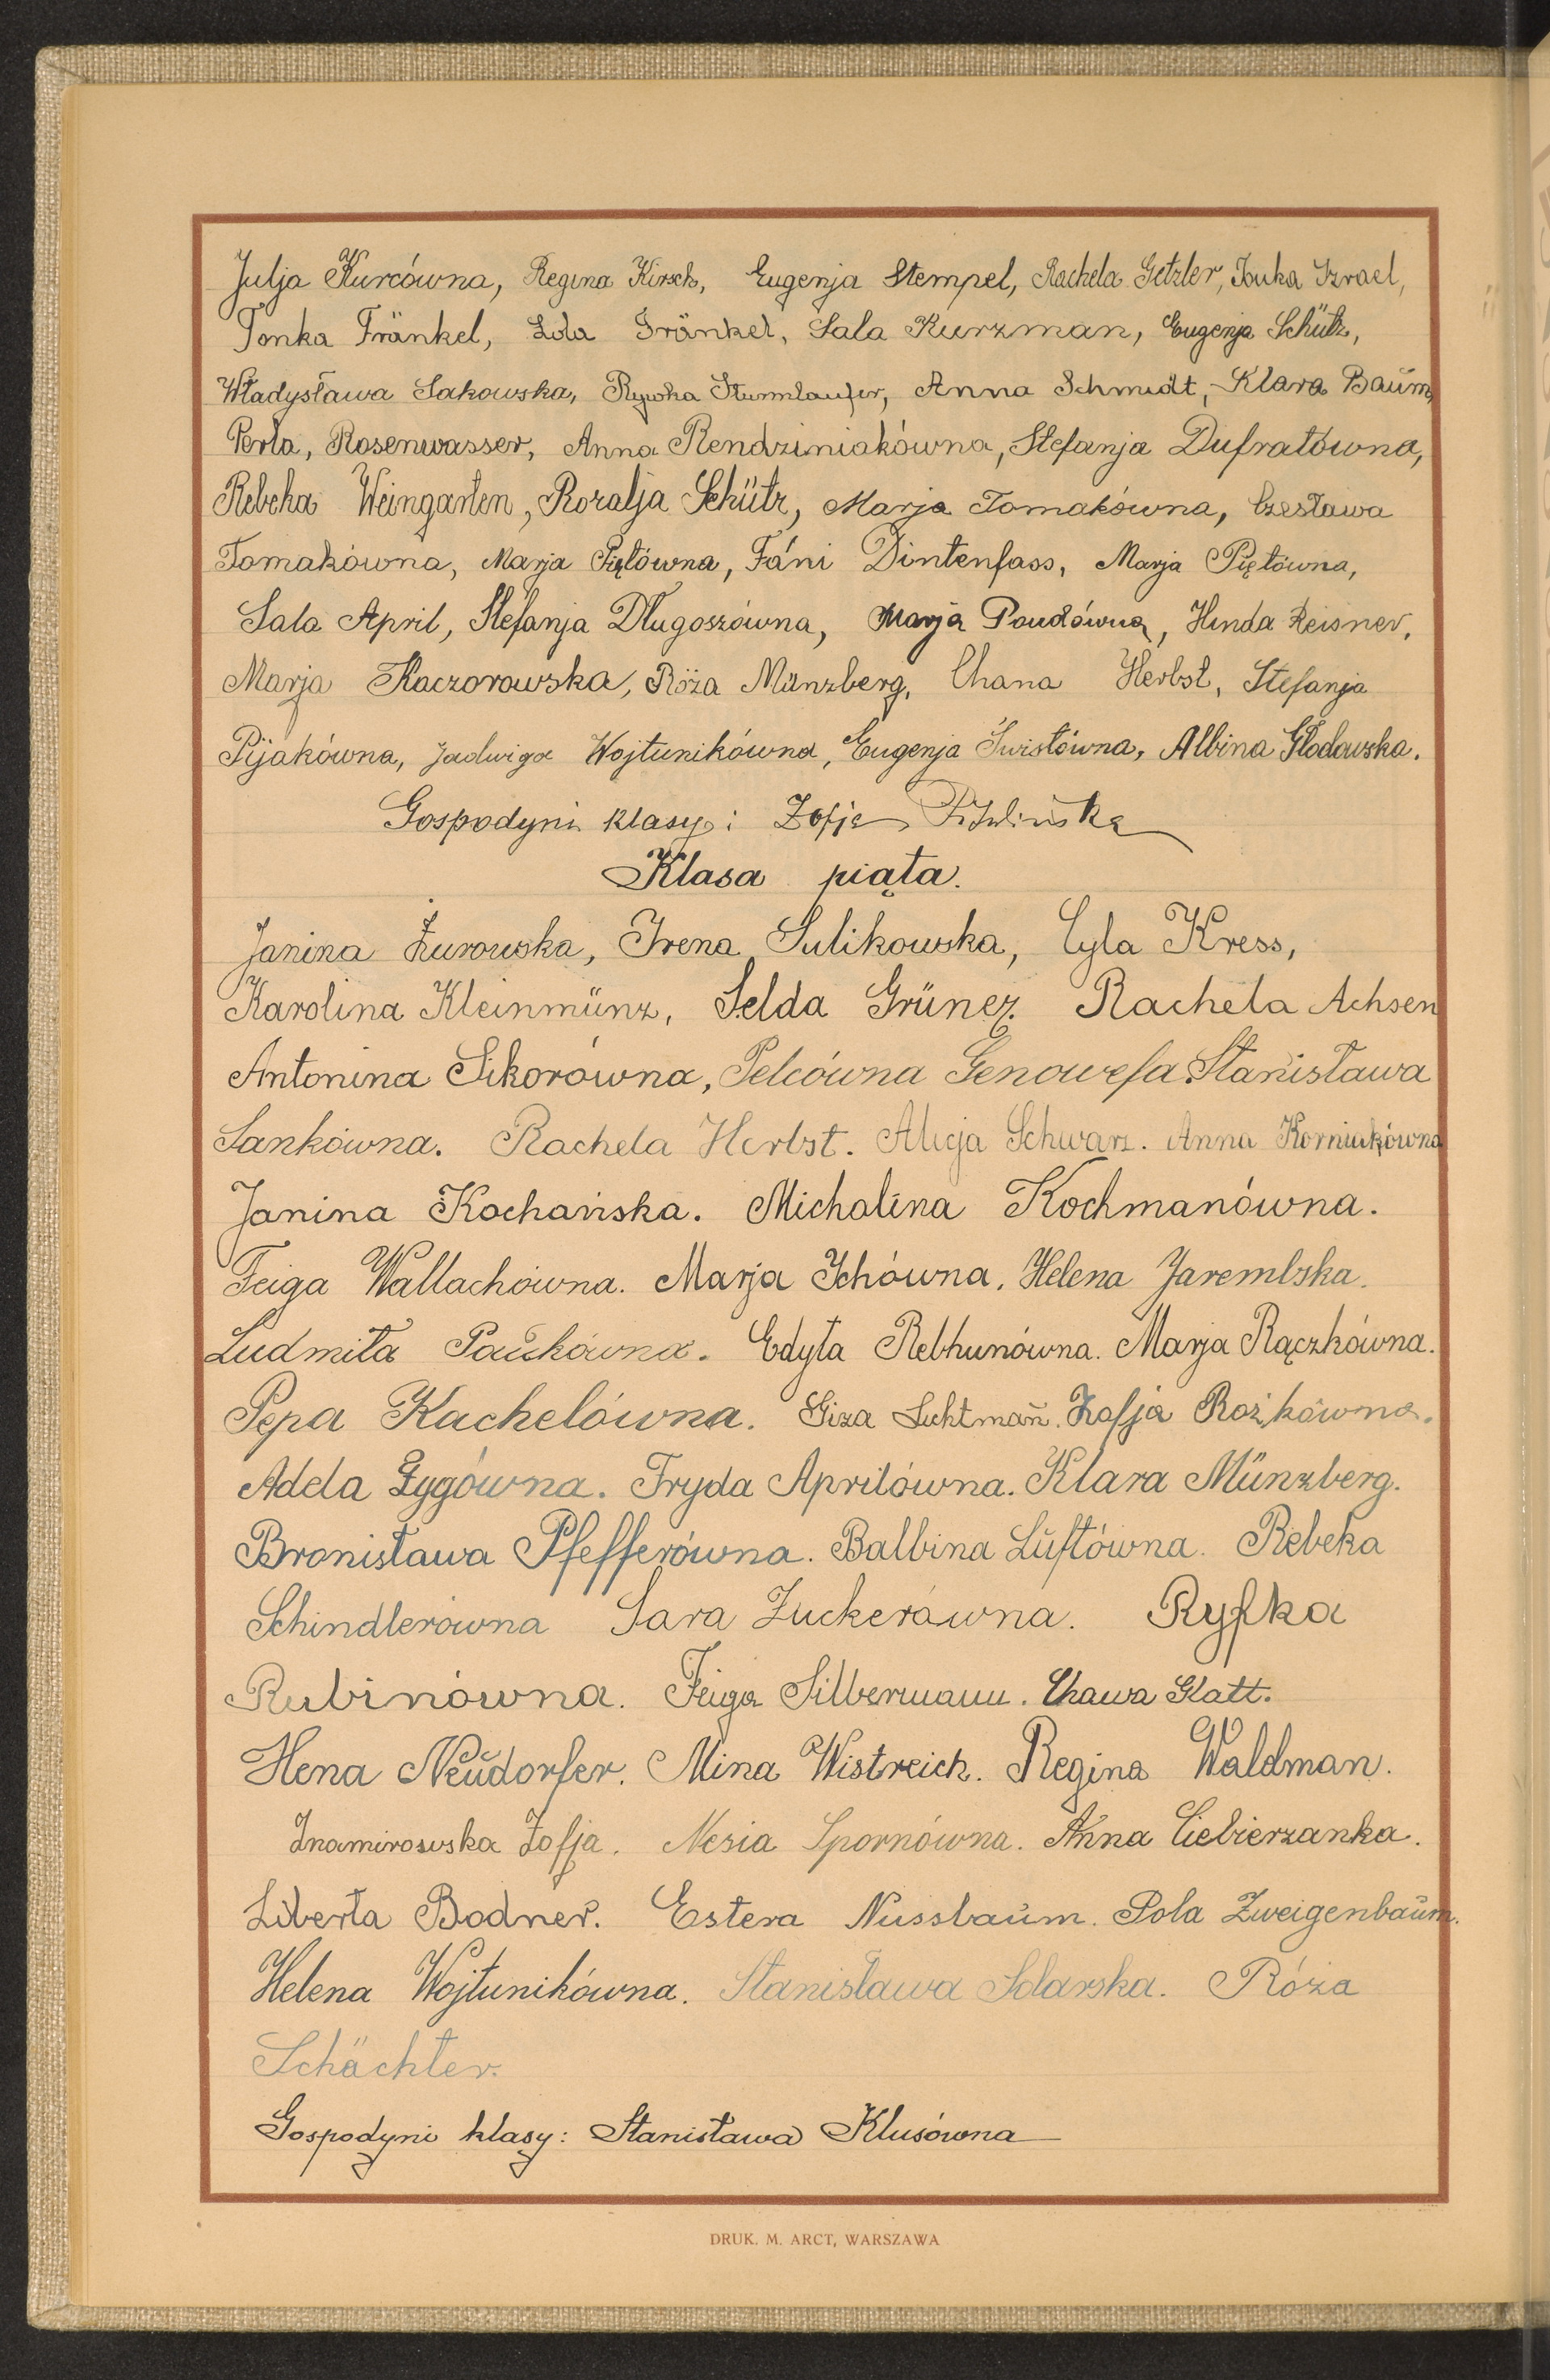 Julja Kurcówna, Regina Kirsch, Eugenja Stempel, Rachela Getzler, Izrael,
Tonka Fränkel, Lola Fränkel, Sala Kurzman, Eugenja Schütz,
Władysława Sakowska, Rywka Sturmlaufer, Anna Schmidt, Klara Baum,
Perla, Rosenwasser, Anna Rendziniakówna, Stefanja Dufratówna,
Rebeka Weingarten, Rozalja Schütz, Marja Tomakówna, Czesława
Tomakówna, Marja Piętówna, Fáni Dintenfass, Marja Piętówna,
Sala April, Stefanja Długoszówna, Marja Paudówna, Hinda Reisner,
Marja Kaczorowska, Róża Münzberg, Chana Herbst, Stefanja
Pijakówna, Jadwiga Wojtunikówna, Eugenja Świstówna, Albina Głodowska.
Gospodyni klasy: Zofja
Klasa piąta.
Janina Żurowska, Irena Sulikowska, Cyla Kress,
Karolina Kleinmünz, Selda Grüner. Rachela Achsen
Antonina Sikorówna, Pelcówna Genowefa. Stanisława
Sankówna. Rachela Herbst. Alicja Schwarz. Anna Korniukówna
Janina Kochańska. Michalina Kochmanówna.
Feiga Wallachówna. Marja Ichówna. Helena Jaremlska.
Ludmiła Paŭkówna. Edyta Rebhunówna. Marja Rączkówna.
Pepa Kachelówna. Giza Luchtman. Zofja Rożkówna.
Adela Zygówna. Fryda Aprilówna. Klara Münzberg.
Bronisława Pfefferówna. Balbina Lŭftówna. Rebeka
Schindlerówna Sara Zuckerówna. Ryfka
Rubinówna. Feiga Silbermann. Chawa Glatt.
Hena Neŭdorfer. Mina Wistreich. Regina Waldman.
Znamirowska Zofja. Nesia Spornówna. Anna Ciebierzanka.
Liberta Bodner. Estera Nussbaŭm. Pola Zweigenbaŭm.
Helena Wojtunikówna. Stanisława Solarska. Róża
Schächter.
Gospodyni klasy: Stanisława Klusówna
DRUK. M. ARCT, WARSZAWA